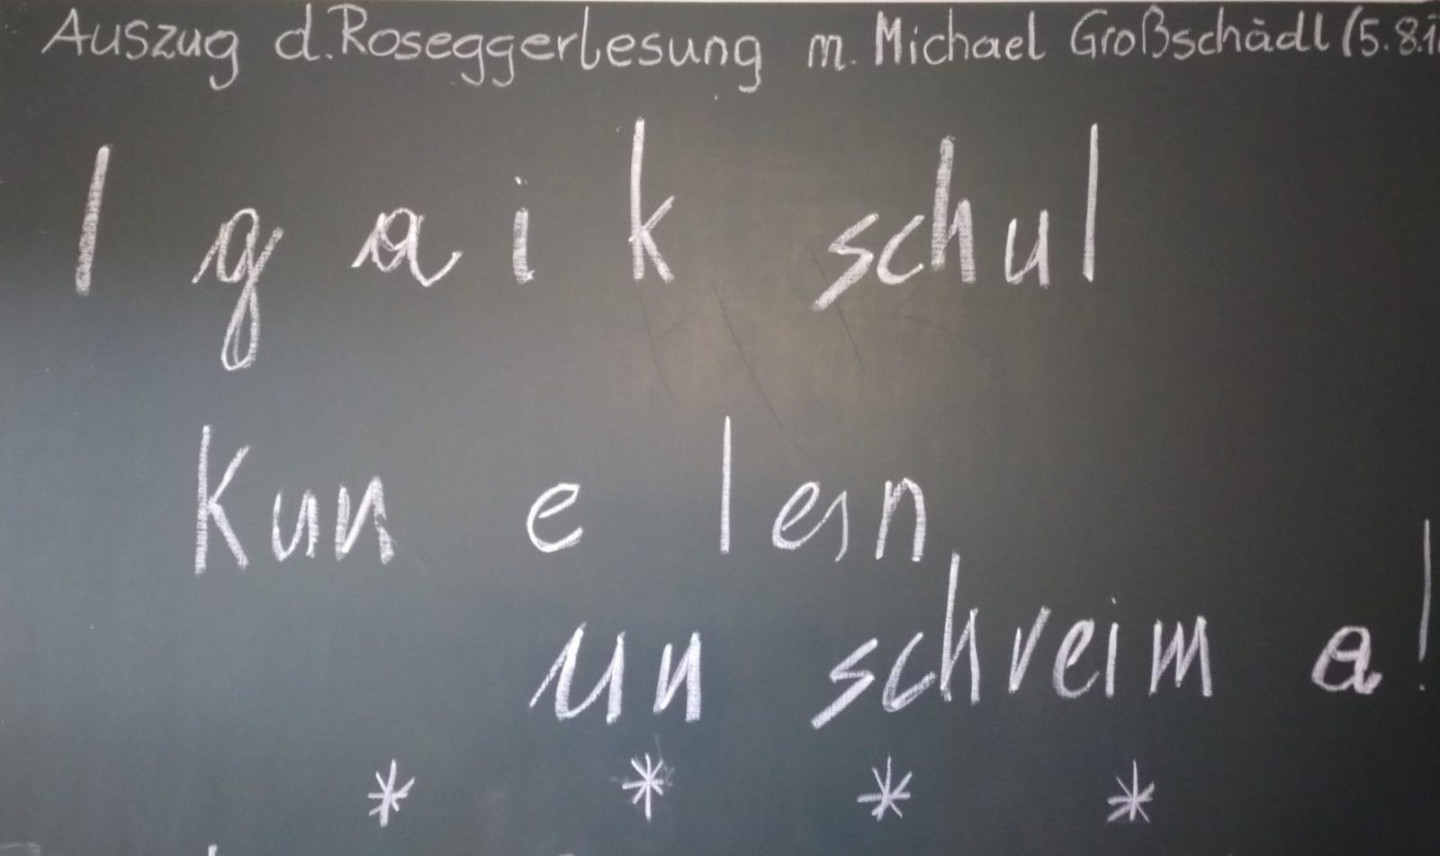 Auszug d. Roseggerlesung m. Michael Großschädl (5.8.1
I g a i k schul
kun e lesn
un schreim a!
* * * *